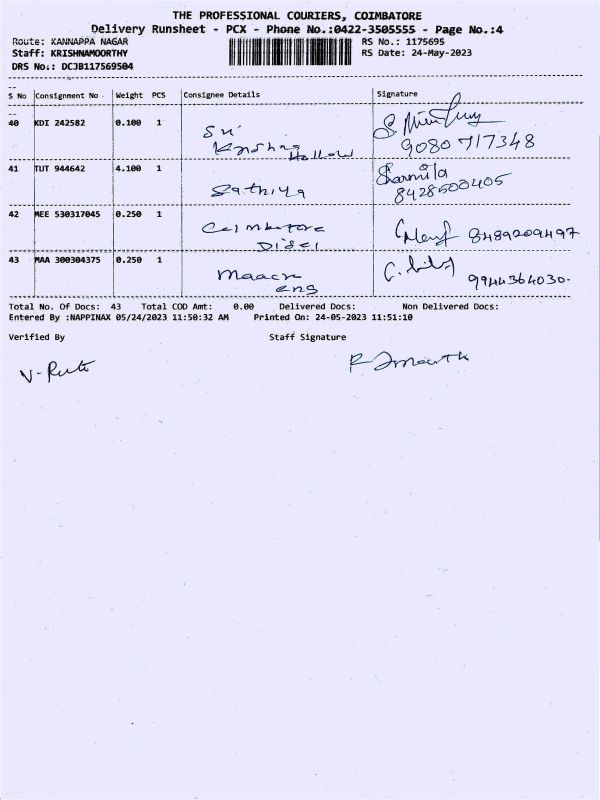 THE PROFESSIONAL COURIERS, COIMBATORE
Delivery Runsheet - PCX - Phone No.:0422-3505555 - Page No.:4
Route: KANNAPPA NAGAR RS No.: 1175695
Staff: KRISHNAMOORTHY RS Date: 24-May-2023
DRS No.: DCJB117569504
S No Consignment No Weight PCS Consignee Details Signature
40 KDI 242582 0.100 1 Sri
Hollow 9080717348
41 TUT 944642 4.100 1 Sathiya Sharmila
8428500405
42 MEE 530317045 0.250 1 8489209497
43 MAA 300304375 0.250 1
eng 9944364030.
Total No. Of Docs: 43 Total COD Amt: 0.00 Delivered Docs: Non Delivered Docs:
Entered By :NAPPINAX 05/24/2023 11:50:32 AM Printed On: 24-05-2023 11:51:10
Verified By Staff Signature